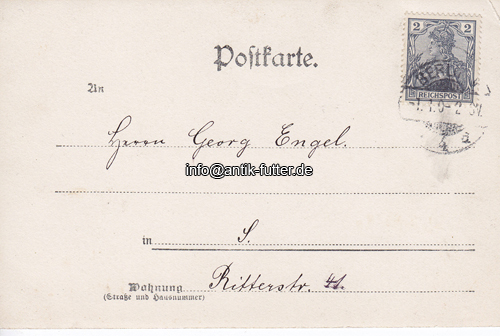 2 2
REICHSPOST
BERLIN
Postkarte.
An
Herrn Georg Engel.
info@antik-futter.de
in S.
Wohnung Ritterstr. 41.
(Straße und Hausnummer)